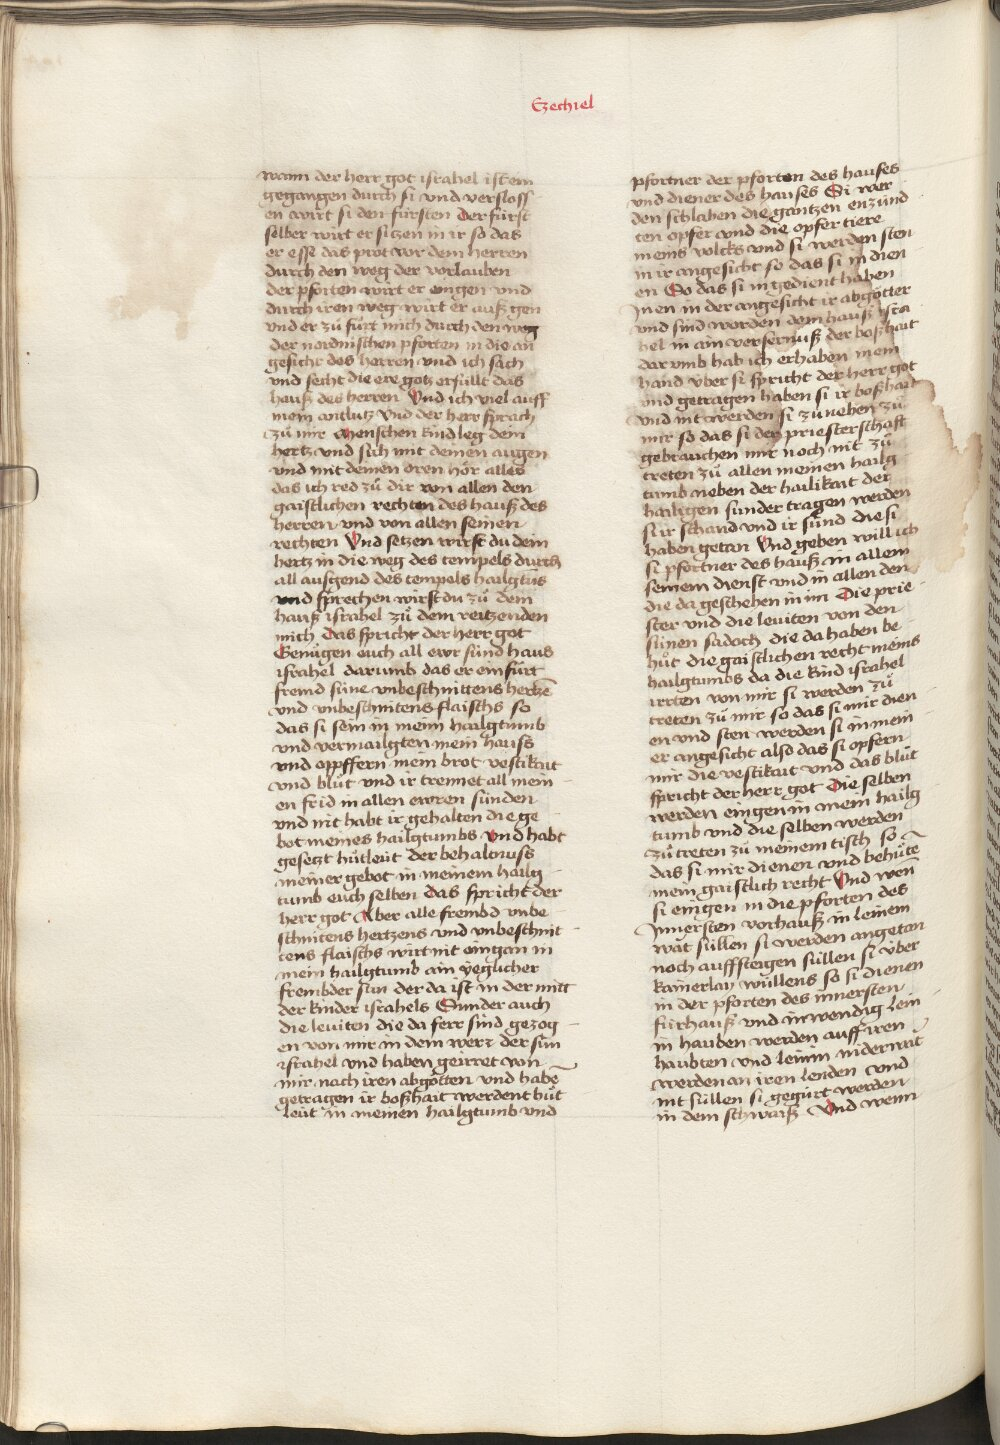 Ezechiel
wann der herr got israhel ist ein
gegangen durch si vnd versloss
en wirt si den fürsten Der fürst
selber wirt er sitzen in ir so das
er esse das prot vor dem herren
durch den weg der vorlauben
der pforten wirt er eingen vnd
durch iren weg wirt er auß gen
vnd er zu fürt mich durch den weg
der nordnischen pforten in die an
gesicht des herren vnd ich sach
vnd secht die ere gotz erfüllt das
hauß des herren Vnd ich viel auff
mein antlutz Vnd der herr sprach
zů mir Menschen kind leg dein
hertz vnd sich mit deinen augen
vnd mit deinen oren hör alles
das ich red zů dir von allen den
gaistlichen rechten des hauß des
herren vnd von allen seinen
rechten Vnd setzen wirst du dein
hertz in die weg des tempels durch
all ausgend des tempels hailgtūs
vnd sprechen wirst du zů dem
hauß israhel zů dem reitzenden
mich Das spricht der herr got
Genůgen euch all ewr sünd haus
israhel darumb das er ein fürt
fremd süne vnbeschnittens hertzē
vnd vnbeschnitens flaischs so
das si sein in meim hailgtumb
vnd vermailgten mein hauss
vnd oppffern mein brot vestikait
vnd blůt vnd ir trennet all mein
en frid in allen ewren sünden
vnd nit habt ir gehalten die ge
bot meines hailgtumbs Vnd habt
gesetzt hůtleut der behaltnuss
meiner gebot in meinem hailg
tumb euch selben Das spricht der
herr got Aber alle frembd vnbe
schnitens hertzens vnd vnbeschnit
tens flaischs wirt nit eingan in
mein hailgtumb ain yeglicher
frembder sun der da ist in der mitt
der kinder israhels Sunder auch
die leuiten die da ferr sind gezog
en von mir in dem werr der sün
israhel vnd haben geirret von
mir nach iren abgötten vnd habē
getragen ir boßhait werdent hůt
leut in meinen hailgtumb vnd
pfortner der pforten des hauses
vnd diener des hauses Si wer
den schlahen die gantzen enzünd
ten opfer vnd die opfer tiere
meins volcks vnd si werden sten
in ir angesicht so das si in dien
en So das si in gedient haben
Inen in der angesicht ir abgötter
vnd sind worden dem hauß isra
hel in ain versernuß der boßhait
dar vmb hab ich erhaben mein
hand vber si spricht der herr got
vnd getragen haben si ir boßhait
vnd nit werden si zunehen zů
mir so das si der priesterschaft
gebrauchen mir noch nit zů
treten zů allen meinen hailg
tumb neben der hailikait der
hailigen sunder tragen werden
si ir schand vnd ir sünd die si
haben getan Vnd geben will ich
si pfortner des hauß in allem
seinem dienst vnd in allen den
die da geschehen in im Die prie
ster vnd die leuiten von den
sünen sadoch die da haben be
hůt die gaistlichen recht meins
hailgtumbs da die kind israhel
irrten von mir si werden zů
treten zů mir so das si mir dien
en vnd sten werden si in mein
er angesicht also das si opfern
mir die vestikait vnd das blůt
spricht der herr got Die selben
werden eingen in mein hailg
tumb vnd die selben werden
zů treten zů meinem tisch so
das si mir dienen vnd behůtē
mein gaistlich recht Vnd wen̄
si eingen in die pforten des
Innersten vorhauß in leinem
wat süllen si werden angetan
noch auffsteigen süllen si vber
kainerlay wullens so si dienen
in der pforten des innersten
fürhauß vnd inwendig Lein
in hauben werden auff iren
haubten vnd leinin niderwat
werden an iren lenden vnd
nit süllen si gegürt werden
in dem schwaiß Vnd wenn